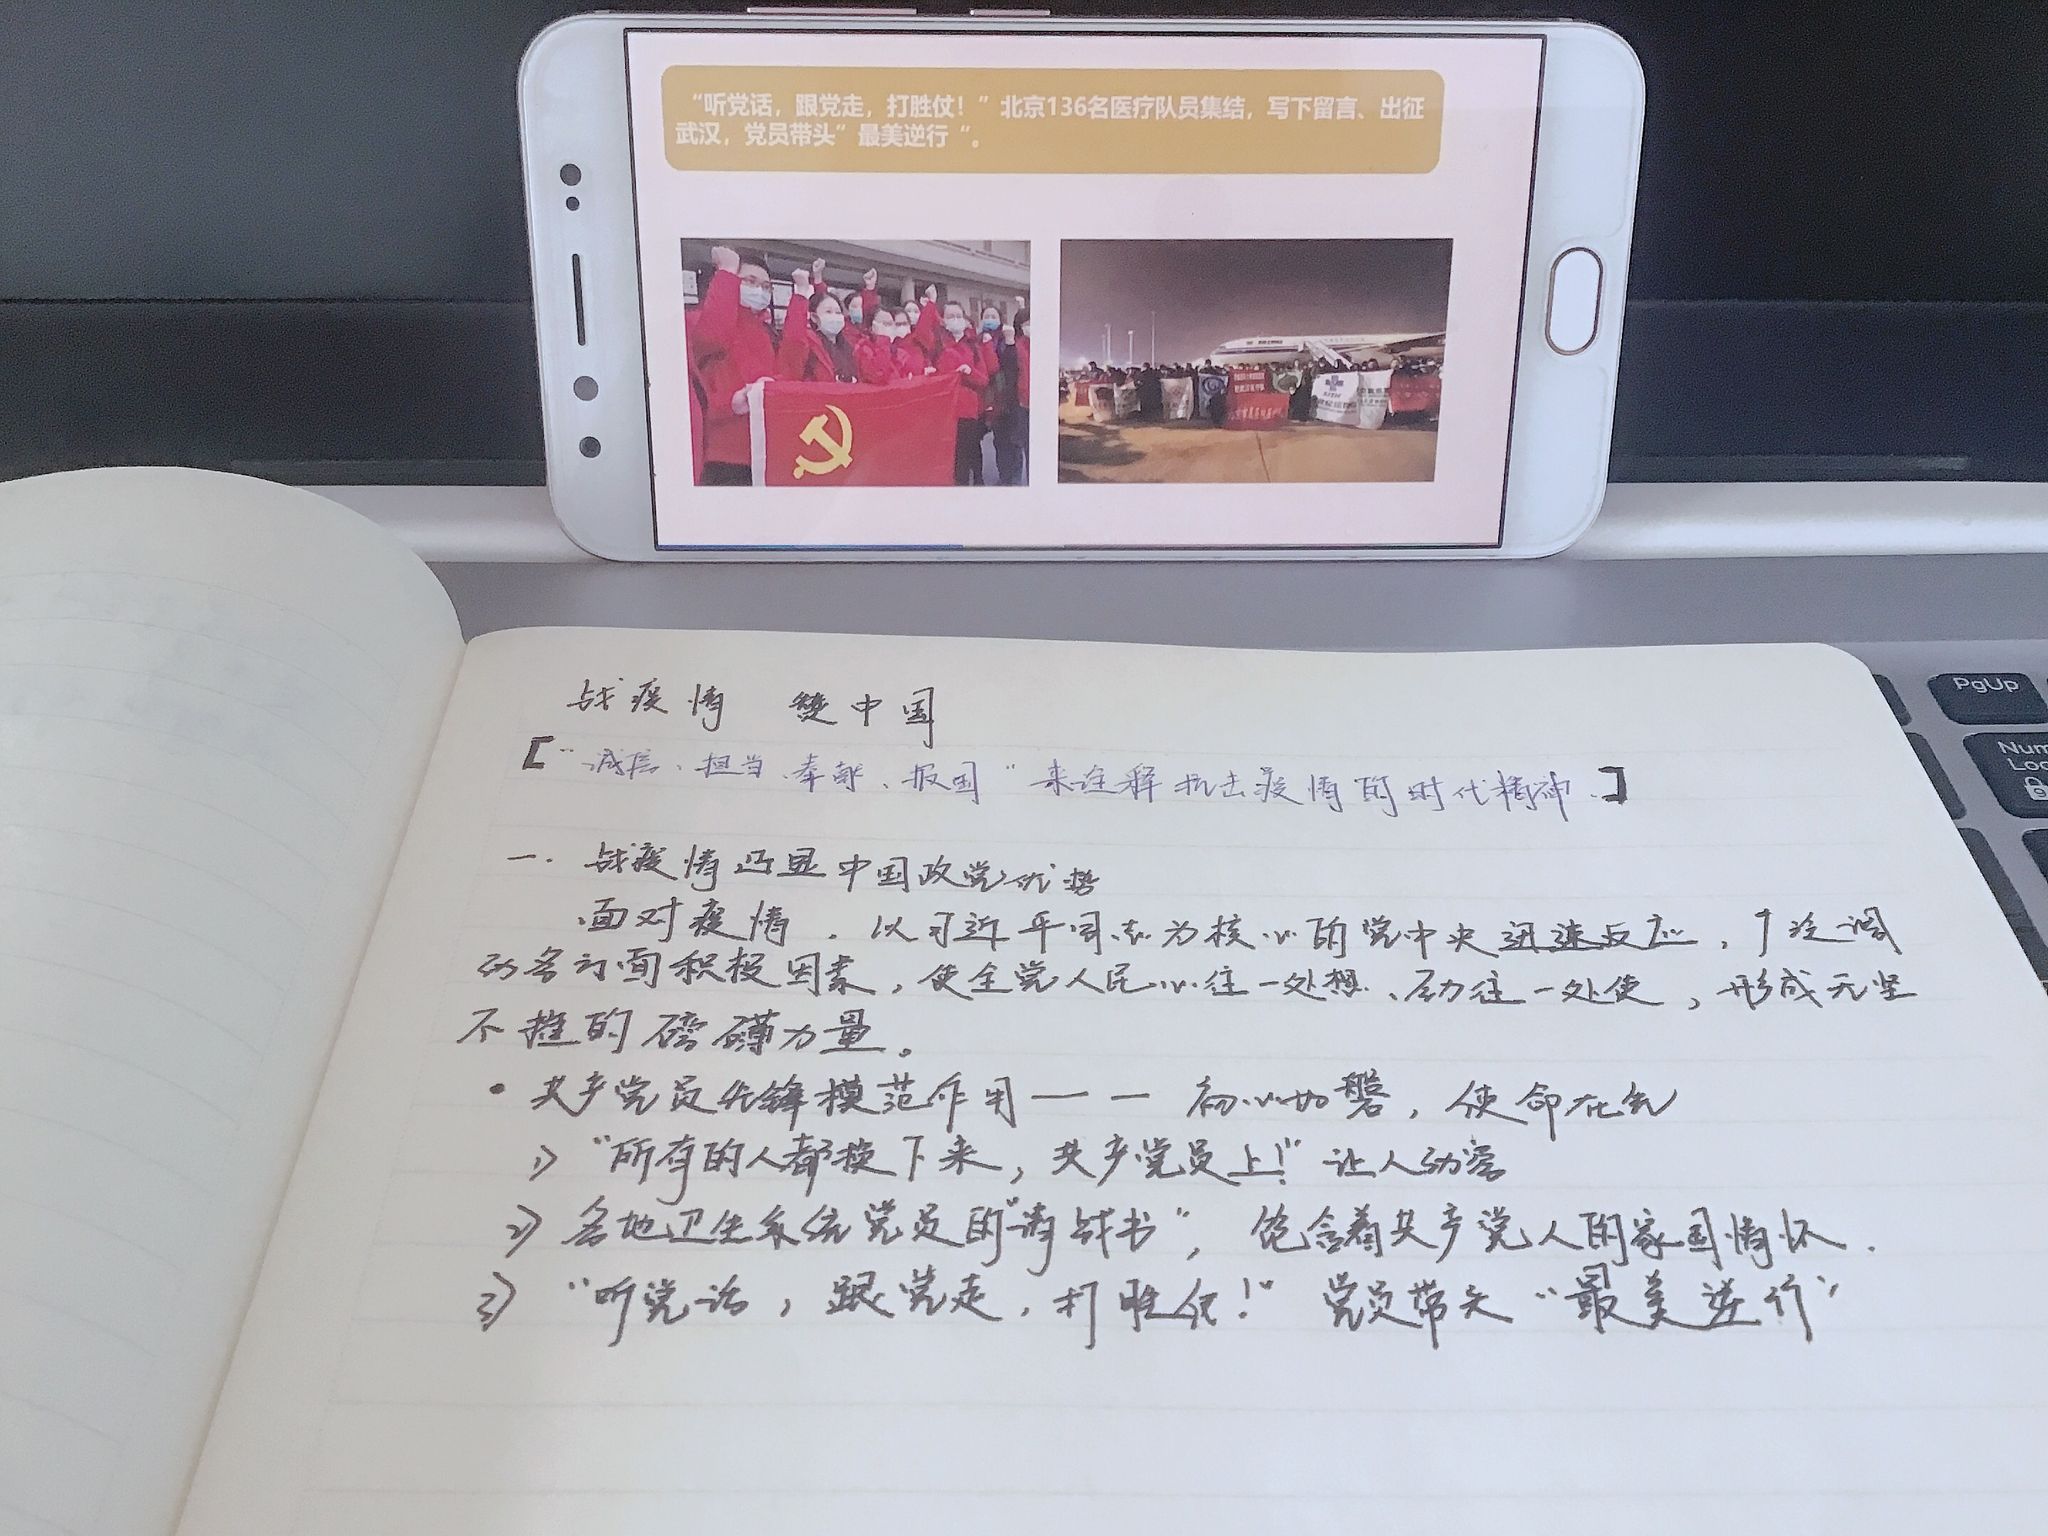 “听党话，跟党走，打胜仗！”北京136名医疗队员集结，写下留言、出征
武汉，党员带头”最美逆行“。
战疫情 赞中国
【“诚信、担当、奉献、报国”来诠释抗击疫情的时代精神.】
一. 战疫情凸显中国政党优势
面对疫情，以习近平同志为核心的党中央迅速反应，广泛调
动各方面积极因素，使全党人民心往一处想、劲往一处使，形成无坚
不摧的磅礴力量。
• 共产党员先锋模范作用—— 初心如磐，使命在先
1）“所有的人都换下来，共产党员上！”让人动容
2）各地卫生系统党员的“请战书”，饱含着共产党人的家国情怀.
3）“听党话，跟党走，打胜仗！”党员带头“最美逆行”
PgUp
Num
Loc
9